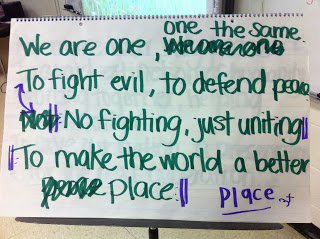 one the same.
We are one,
To fight evil, to defend peace
No fighting, just uniting
To make the world a better
place
place